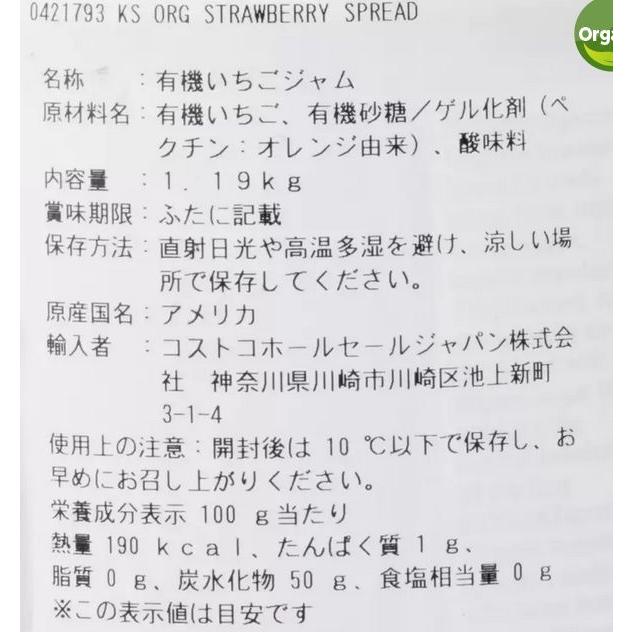 0421793 KS ORG STRAWBERRY SPREAD
Orga
名称　　：有機いちごジャム
原材料名：有機いちご、有機砂糖／ゲル化剤（ペ
クチン：オレンジ由来）、酸味料
内容量　：１．１９ｋｇ
賞味期限：ふたに記載
保存方法：直射日光や高温多湿を避け、涼しい場
所で保存してください。
原産国名：アメリカ
輸入者　：コストコホールセールジャパン株式会
社　神奈川県川崎市川崎区池上新町
3-1-4
使用上の注意：開封後は 10 ℃以下で保存し、お
早めにお召し上がりください。
栄養成分表示 100 ｇ当たり
熱量 190 ｋｃａｌ、たんぱく質 1 ｇ、
脂質 0 ｇ、炭水化物 50 ｇ、食塩相当量 0 ｇ
※この表示値は目安です